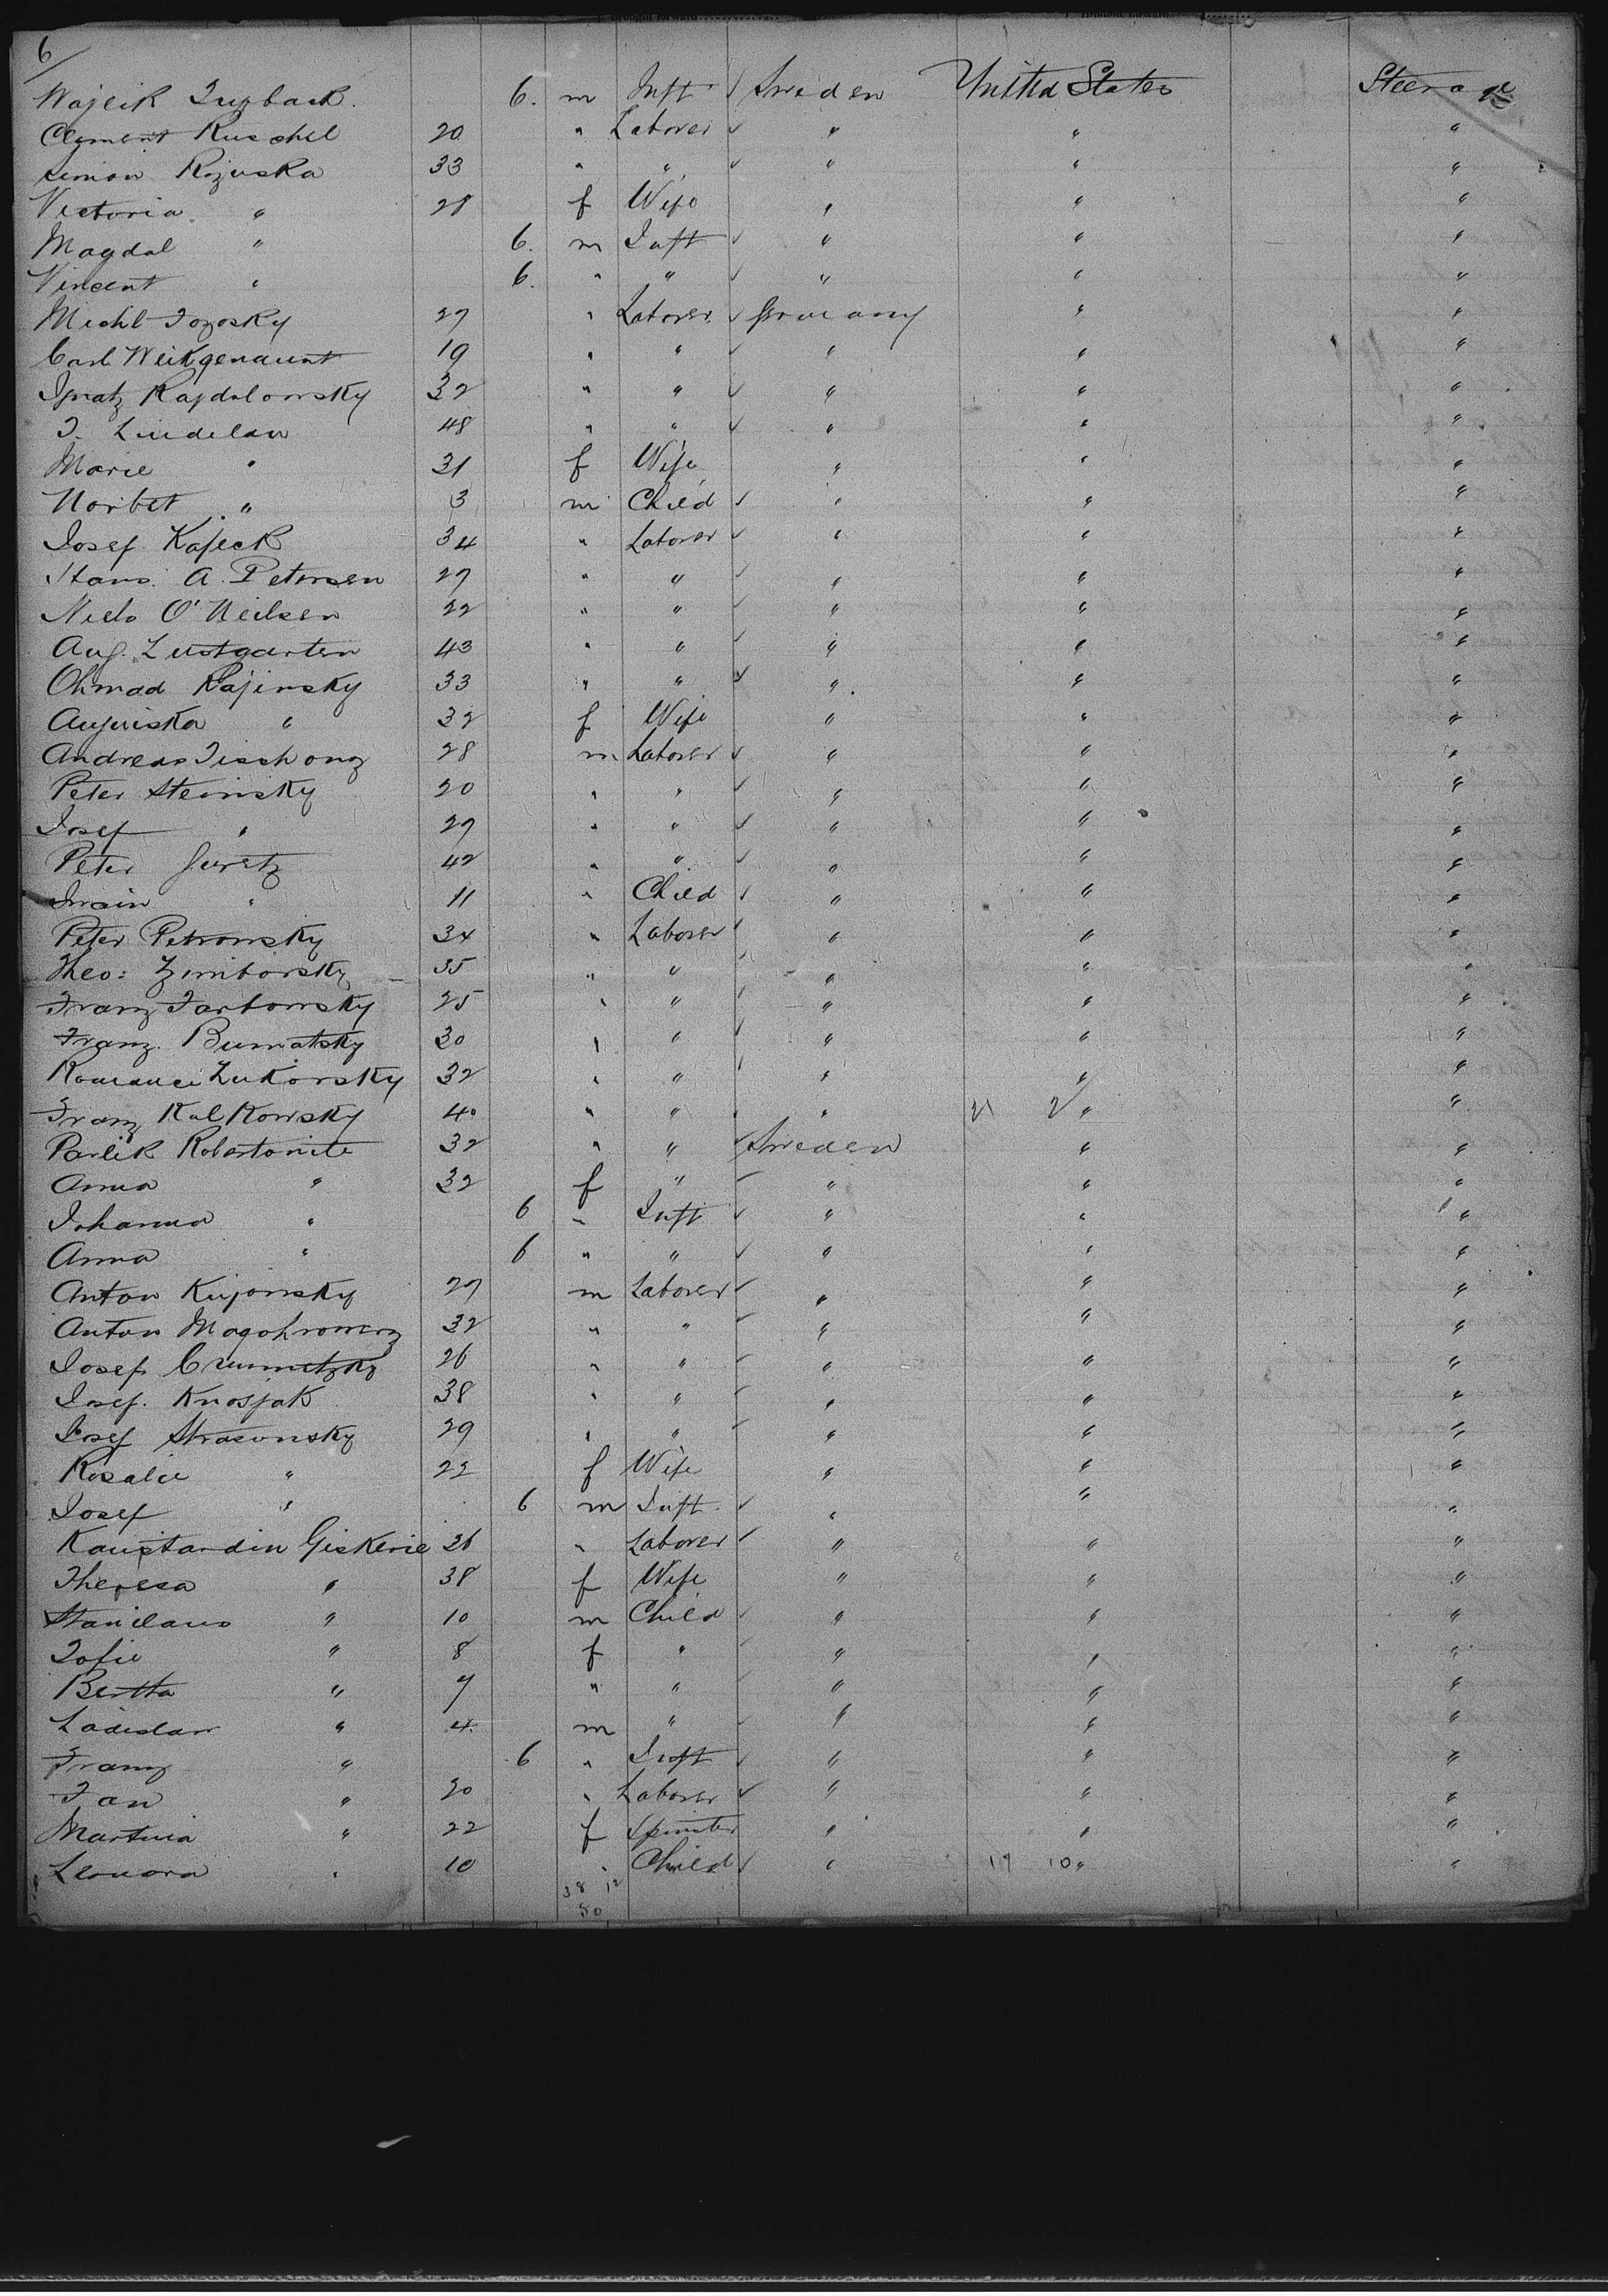 6
Wajcik Turback. 6. m Inft ✓ Sweden United States Steerage
Clement Ruschel 20 " Laborer ✓ " " "
Simon Rozuska 33 " " ✓ " " "
Victoria " 28 f Wife " " "
Magdal " 6. m Inft ✓ " " "
Vincent " 6. " " ✓ " " "
Michl Tozosky 27 " Laborer ✓ Germany " "
Carl Weikgenaunt 19 " " ✓ " " "
Ignatz Rajdalowsky 32 " " ✓ " " "
T. Lindelau 48 " " ✓ " " "
Marie " 31 f Wife " " "
Norbet " 3 m Child ✓ " " "
Josef Kafeck 34 " Laborer ✓ " " "
Hans. A. Petersen 27 " " ✓ " " "
Niels O'Neilsen 22 " " ✓ " " "
Aug. Lustgarten 43 " " ✓ " " "
Ohmad Rajinsky 33 " " ✓ " " "
Auguiska " 32 f Wife " " "
Andreas Tischong 28 m Laborer ✓ " " "
Peter Steinsky 20 " " ✓ " " "
Josef " 27 " " ✓ " " "
Peter Guretz 42 " " ✓ " " "
Irwin " 11 " Child ✓ " " "
Peter Petrowsky 34 " Laborer ✓ " " "
Theo: Zimborsky 35 " " ✓ " " "
Franz Tarbowsky 25 " " ✓ " " "
Franz. Bumatsky 30 " " ✓ " " "
Zukorsky 32 " " ✓ " " "
Franz Kalkowsky 40 " " " 21 2 " "
Pavlik Robertonite 32 " " ✓ Sweden " "
Anna " 32 f " ✓ " " "
Johanna " 6 " Inft ✓ " " "
Anna " 6 " " ✓ " " "
Anton Kujowsky 27 m Laborer ✓ " " "
Anton Magohrowerz 32 " " ✓ " " "
Josef Crummetzky 26 " " ✓ " " "
Josef. Knosjak 38 " " ✓ " " "
Josef Strasunsky 29 " " ✓ " " "
Rosalie " 22 f Wife " " "
Josef " 6 m Inft. ✓ " " "
Kanstandin Giskerie 36 " Laborer ✓ " " "
Theresa " 38 f Wife " " "
Stanilaus " 10 m Child ✓ " " "
Sofie " 8 f " ✓ " " "
Bertta " 7 " " ✓ " " "
Ladislav " 4. m " ✓ " " "
Franz " 6 " Inft ✓ " " "
Jan " 20 " Laborer ✓ " " "
Martina " 22 f Spinster " " "
Leonora " 10 " Child ✓ " 19 10 " "
38 12
50